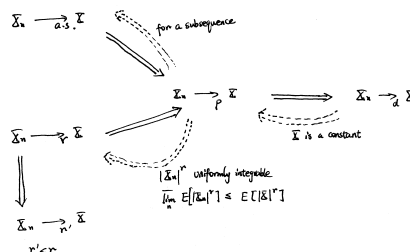 X_n →_{a.s.} X
for a subsequence
X_n →_p X
X_n →_d X
X is a constant
X_n →_r X
|X_n|^r uniformly integrable
\overline{lim}_n E[|X_n|^r] ≤ E[|X|^r]
X_n →_{r'} X
r'<r